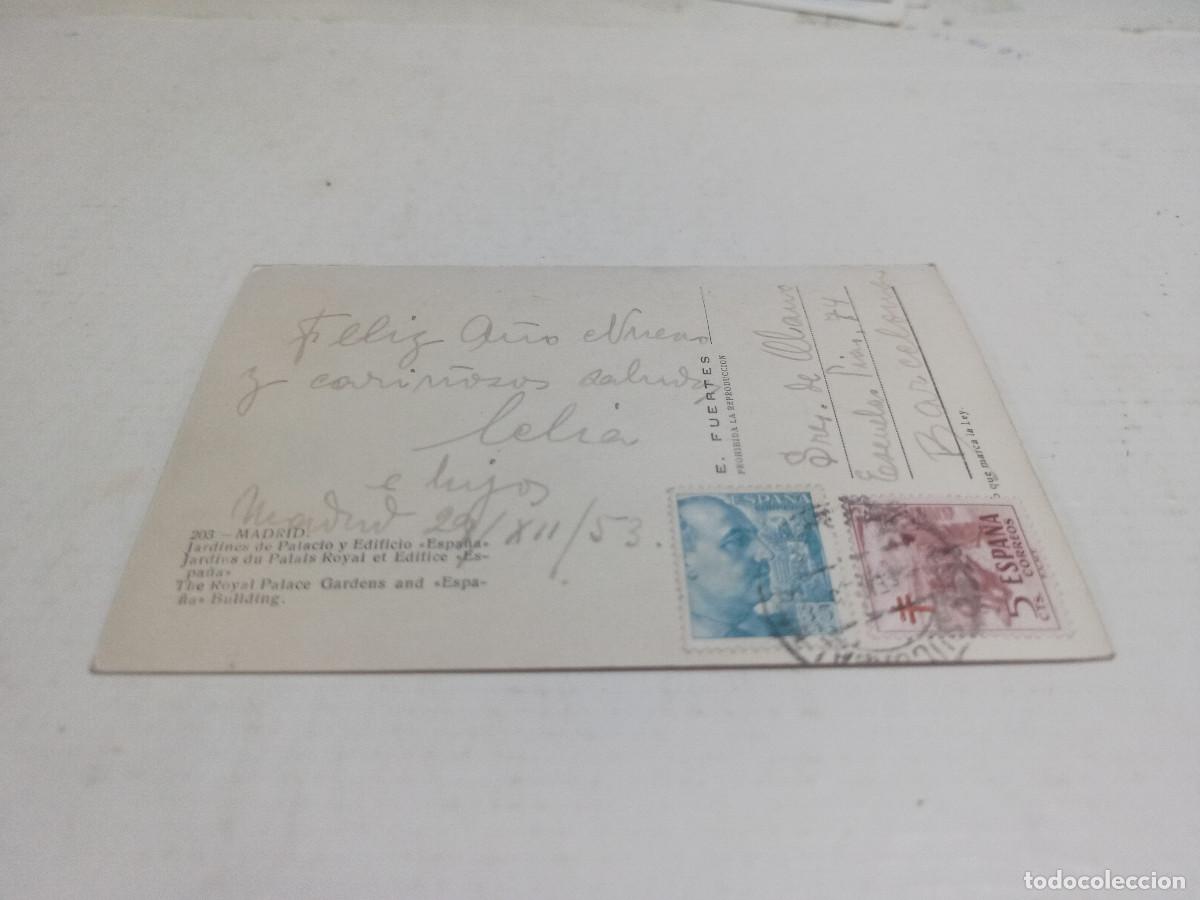 Feliz Año Nuevo
y cariñosos saludos
Celia
e hijos
Madrid 29/XII/53.
203 – MADRID.
Jardines de Palacio y Edificio «España»
Jardins du Palais Royal et Edifice «Es-
paña»
The Royal Palace Gardens and «Espa-
ña» Building.
E. FUERTES
PROHIBIDA LA REPRODUCCION
Sres. de
Escuelas Pías, 74
Barcelona
que marca la ley.
ESPAÑA
5 CTS
ESPAÑA
CORREOS
todocoleccion